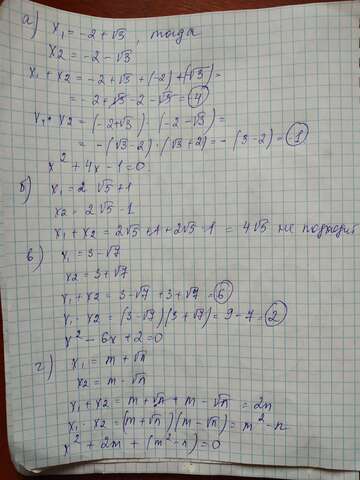 а) x₁ = -2 + √3, тогда
x₂ = -2 - √3
x₁ + x₂ = -2 + √3 + (-2) + (√3) =
= -2 + √3 - 2 - √3 = (4)
x₁ · x₂ = (-2+√3) · (-2-√3) =
= -(√3-2) · (√3+2) = -(3-2) = (1)
x² + 4x - 1 = 0
б) x₁ = 2√5 + 1
x₂ = 2√5 - 1
x₁ + x₂ = 2√5 + 1 + 2√5 - 1 = 4√5 не подходит
в) x₁ = 3 - √7
x₂ = 3 + √7
x₁ + x₂ = 3 - √7 + 3 + √7 = (6)
x₁ · x₂ = (3-√7)(3+√7) = 9 - 7 = (2)
x² - 6x + 2 = 0
г) x₁ = m + √n
x₂ = m - √n
x₁ + x₂ = m + √n + m - √n = 2n
x₁ · x₂ = (m+√n)(m-√n) = m² - n
x² + 2m + (m² - n) = 0